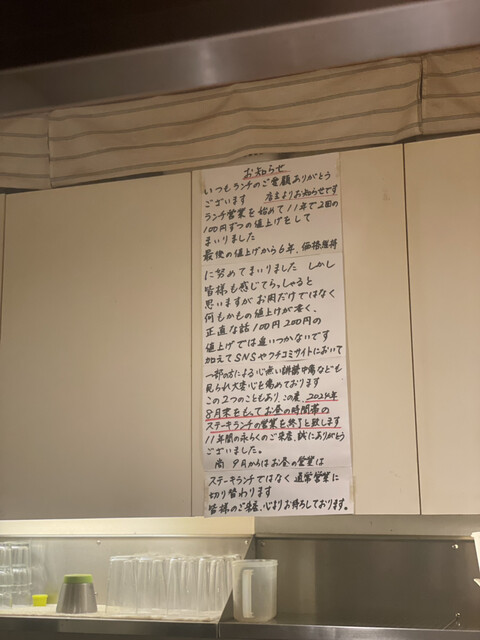 お知らせ
いつもランチのご愛顧ありがとう
ございます　店主よりお知らせです
ランチ営業を始めて11年で2回の
100円ずつの値上げをして
まいりました
最後の値上げから6年、価格維持
に努めてまいりました しかし
皆様も感じてらっしゃると
思いますがお肉だけではなく
何もかもの値上げが凄く、
正直な話100円200円の
値上げでは追いつかないです
加えてSNSやクチコミサイトにおいて
一部の方による心無い誹謗中傷なども
見られ大変心を痛めております
この2つのこともあり、この度、2024年
8月末をもってお昼の時間帯の
ステーキランチの営業を終了と致します
11年間の永らくのご来店、誠にありがとう
ございました。
尚 9月からはお昼の営業は
ステーキランチではなく通常営業に
切り替わります
皆様のご来店、心よりお待ちしております。